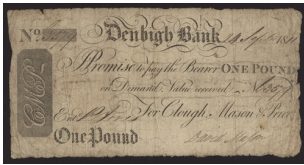 No. Denbigh Bank 14 Septr. 1814
I Promise to pay the Bearer ONE POUND
on Demand Value received No. 357
Entd. For Clough, Mason & Price
One Pound David Mason